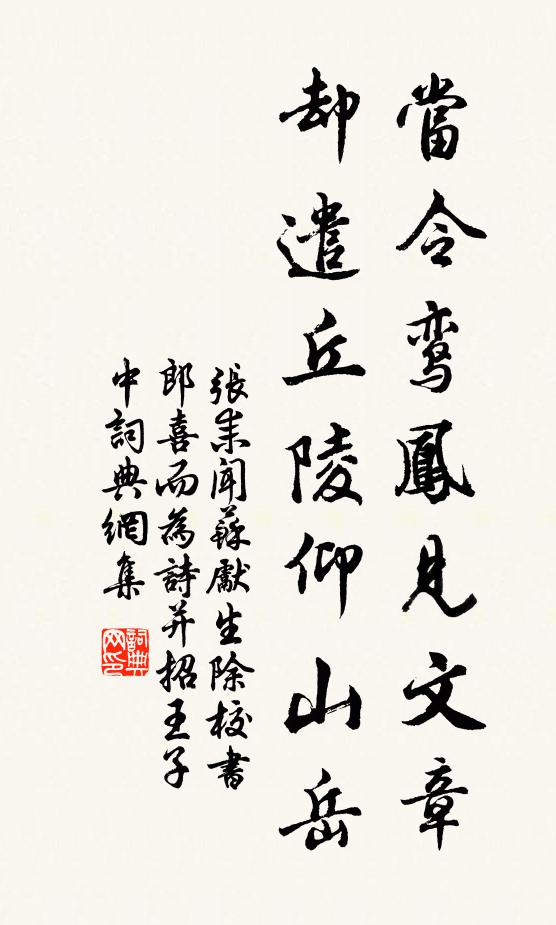 當令鸾鳳見文章
却遣丘陵仰山岳
張耒聞蘇獻生除校書
郎喜而為詩并招王子
中詞典網集
詞典
网印